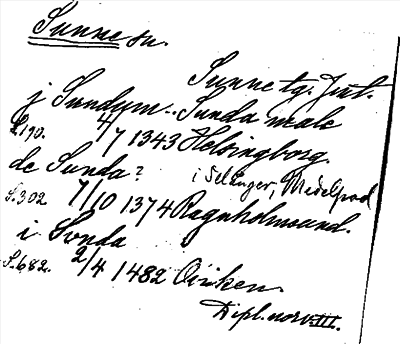 Sunne sn.
Sunne tg. Jät.
j Sundum.. Sunda male
S.190. 4/7 1343 Helsingborg.
de Sunda? i Selånger, Medelpad
S.302 7/10 1374 Ragnholmsund.
i Sunda
S.682. 2/4 1482
Dipl. norv. III.